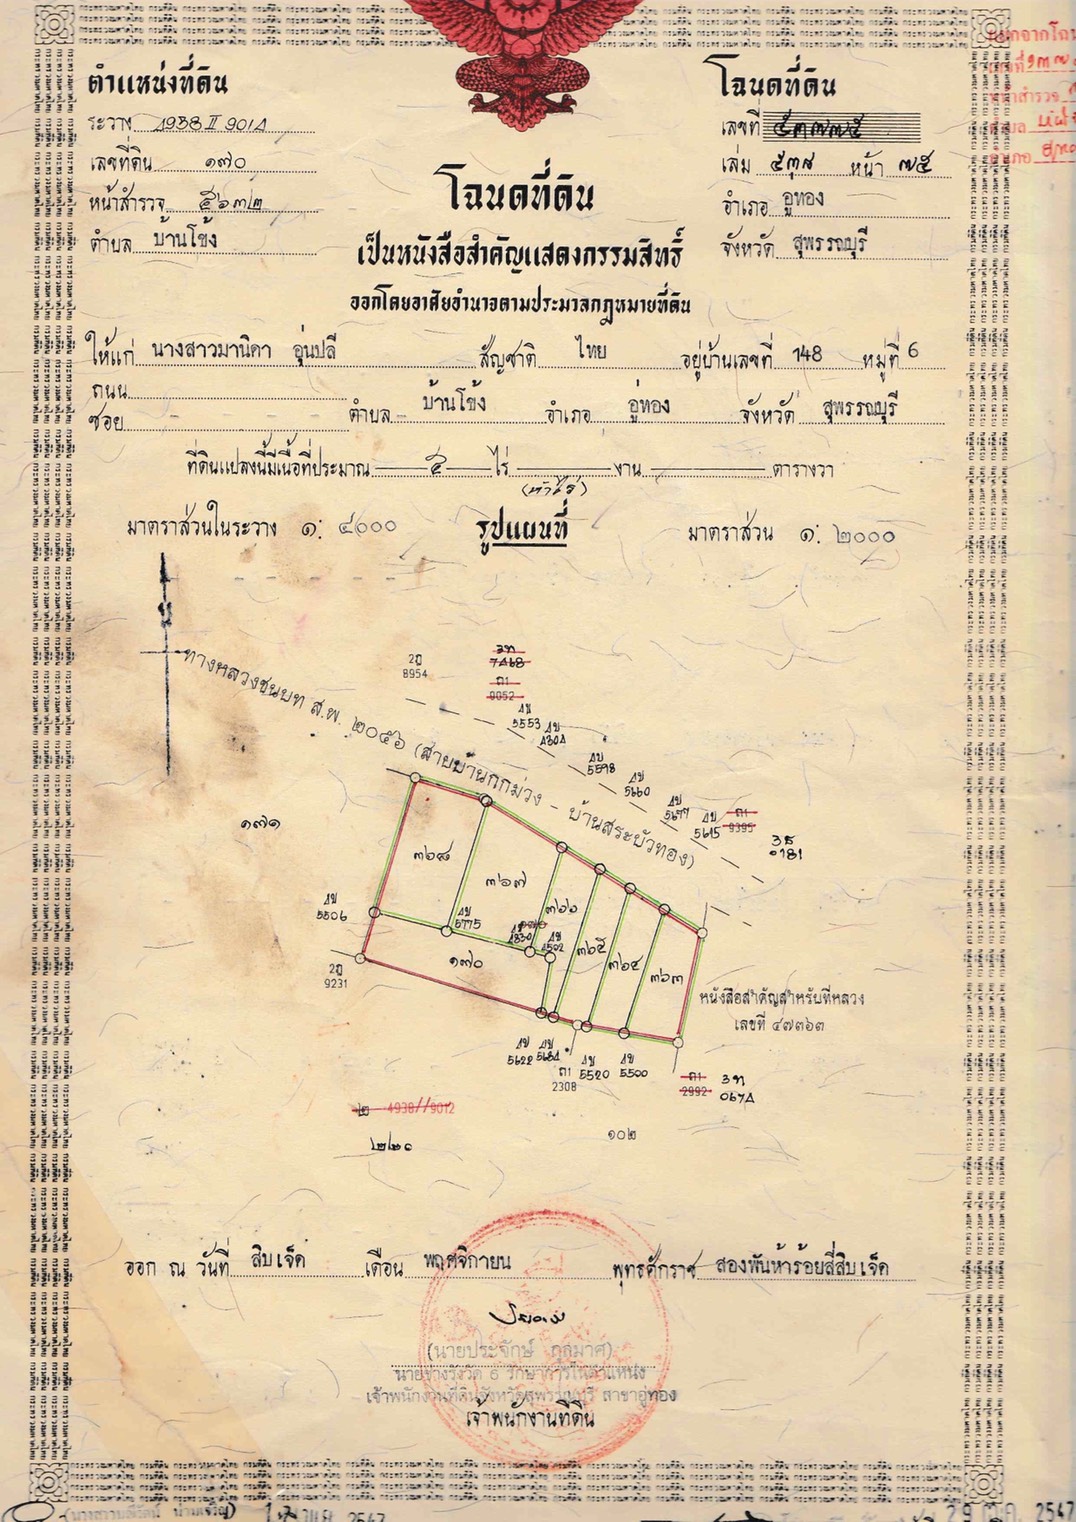 ตำแหน่งที่ดิน
ระวาง 4938 II 9014
เลขที่ดิน ๑๗๐
หน้าสำรวจ ๕๖๓๒
ตำบล บ้านโข้ง
โฉนดที่ดิน
เลขที่ ๕๓๗๗๕
เล่ม ๕๓๘ หน้า ๗๕
อำเภอ อู่ทอง
จังหวัด สุพรรณบุรี
โฉนดที่ดิน
เป็นหนังสือสำคัญแสดงกรรมสิทธิ์
ออกโดยอาศัยอำนาจตามประมวลกฎหมายที่ดิน
ให้แก่ นางสาวมานิดา อุ่นปลี สัญชาติ ไทย อยู่บ้านเลขที่ 148 หมู่ที่ 6
ถนน
ซอย ตำบล บ้านโข้ง อำเภอ อู่ทอง จังหวัด สุพรรณบุรี
ที่ดินแปลงนี้มีเนื้อที่ประมาณ ๕ ไร่ งาน ตารางวา
(ห้าไร่)
มาตราส่วนในระวาง ๑: ๔๐๐๐ รูปแผนที่ มาตราส่วน ๑: ๒๐๐๐
ทางหลวงชนบท ส.พ. ๒๐๕๖ (สายบ้านกกม่วง - บ้านสระบัวทอง)
2ฎ
8954
3ท
7468
ถ1
9052
4ข
5553
4ข
4304
4ข
5598
4ข
5660
4ข
5677
4ข
5615
ถ1
9395
3ธ
0181
๑๗๑
๓๖๘
๓๖๗
๓๖๖
๓๖๕
๓๖๔
๓๖๓
๑๗๐
4ข
5506
4ข
5775
4ข
4830
4ข
4502
2ฎ
9231
หนังสือสำคัญสำหรับที่หลวง
เลขที่ ๔๗๓๖๓
4ข
5622
4ข
5684
ถ1
2308
4ข
5520
4ข
5500
ถ1
2992
3ท
0674
๒ 4938//9012
๒๒๑
๑๐๒
ออก ณ วันที่ สิบเจ็ด เดือน พฤศจิกายน พุทธศักราช สองพันห้าร้อยสี่สิบเจ็ด
(นายประจักษ์ กุลมาศ)
นายช่างรังวัด 6 รักษาการในตำแหน่ง
เจ้าพนักงานที่ดินจังหวัดสุพรรณบุรี สาขาอู่ทอง
เจ้าพนักงานที่ดิน
29 มี.ค. 2547